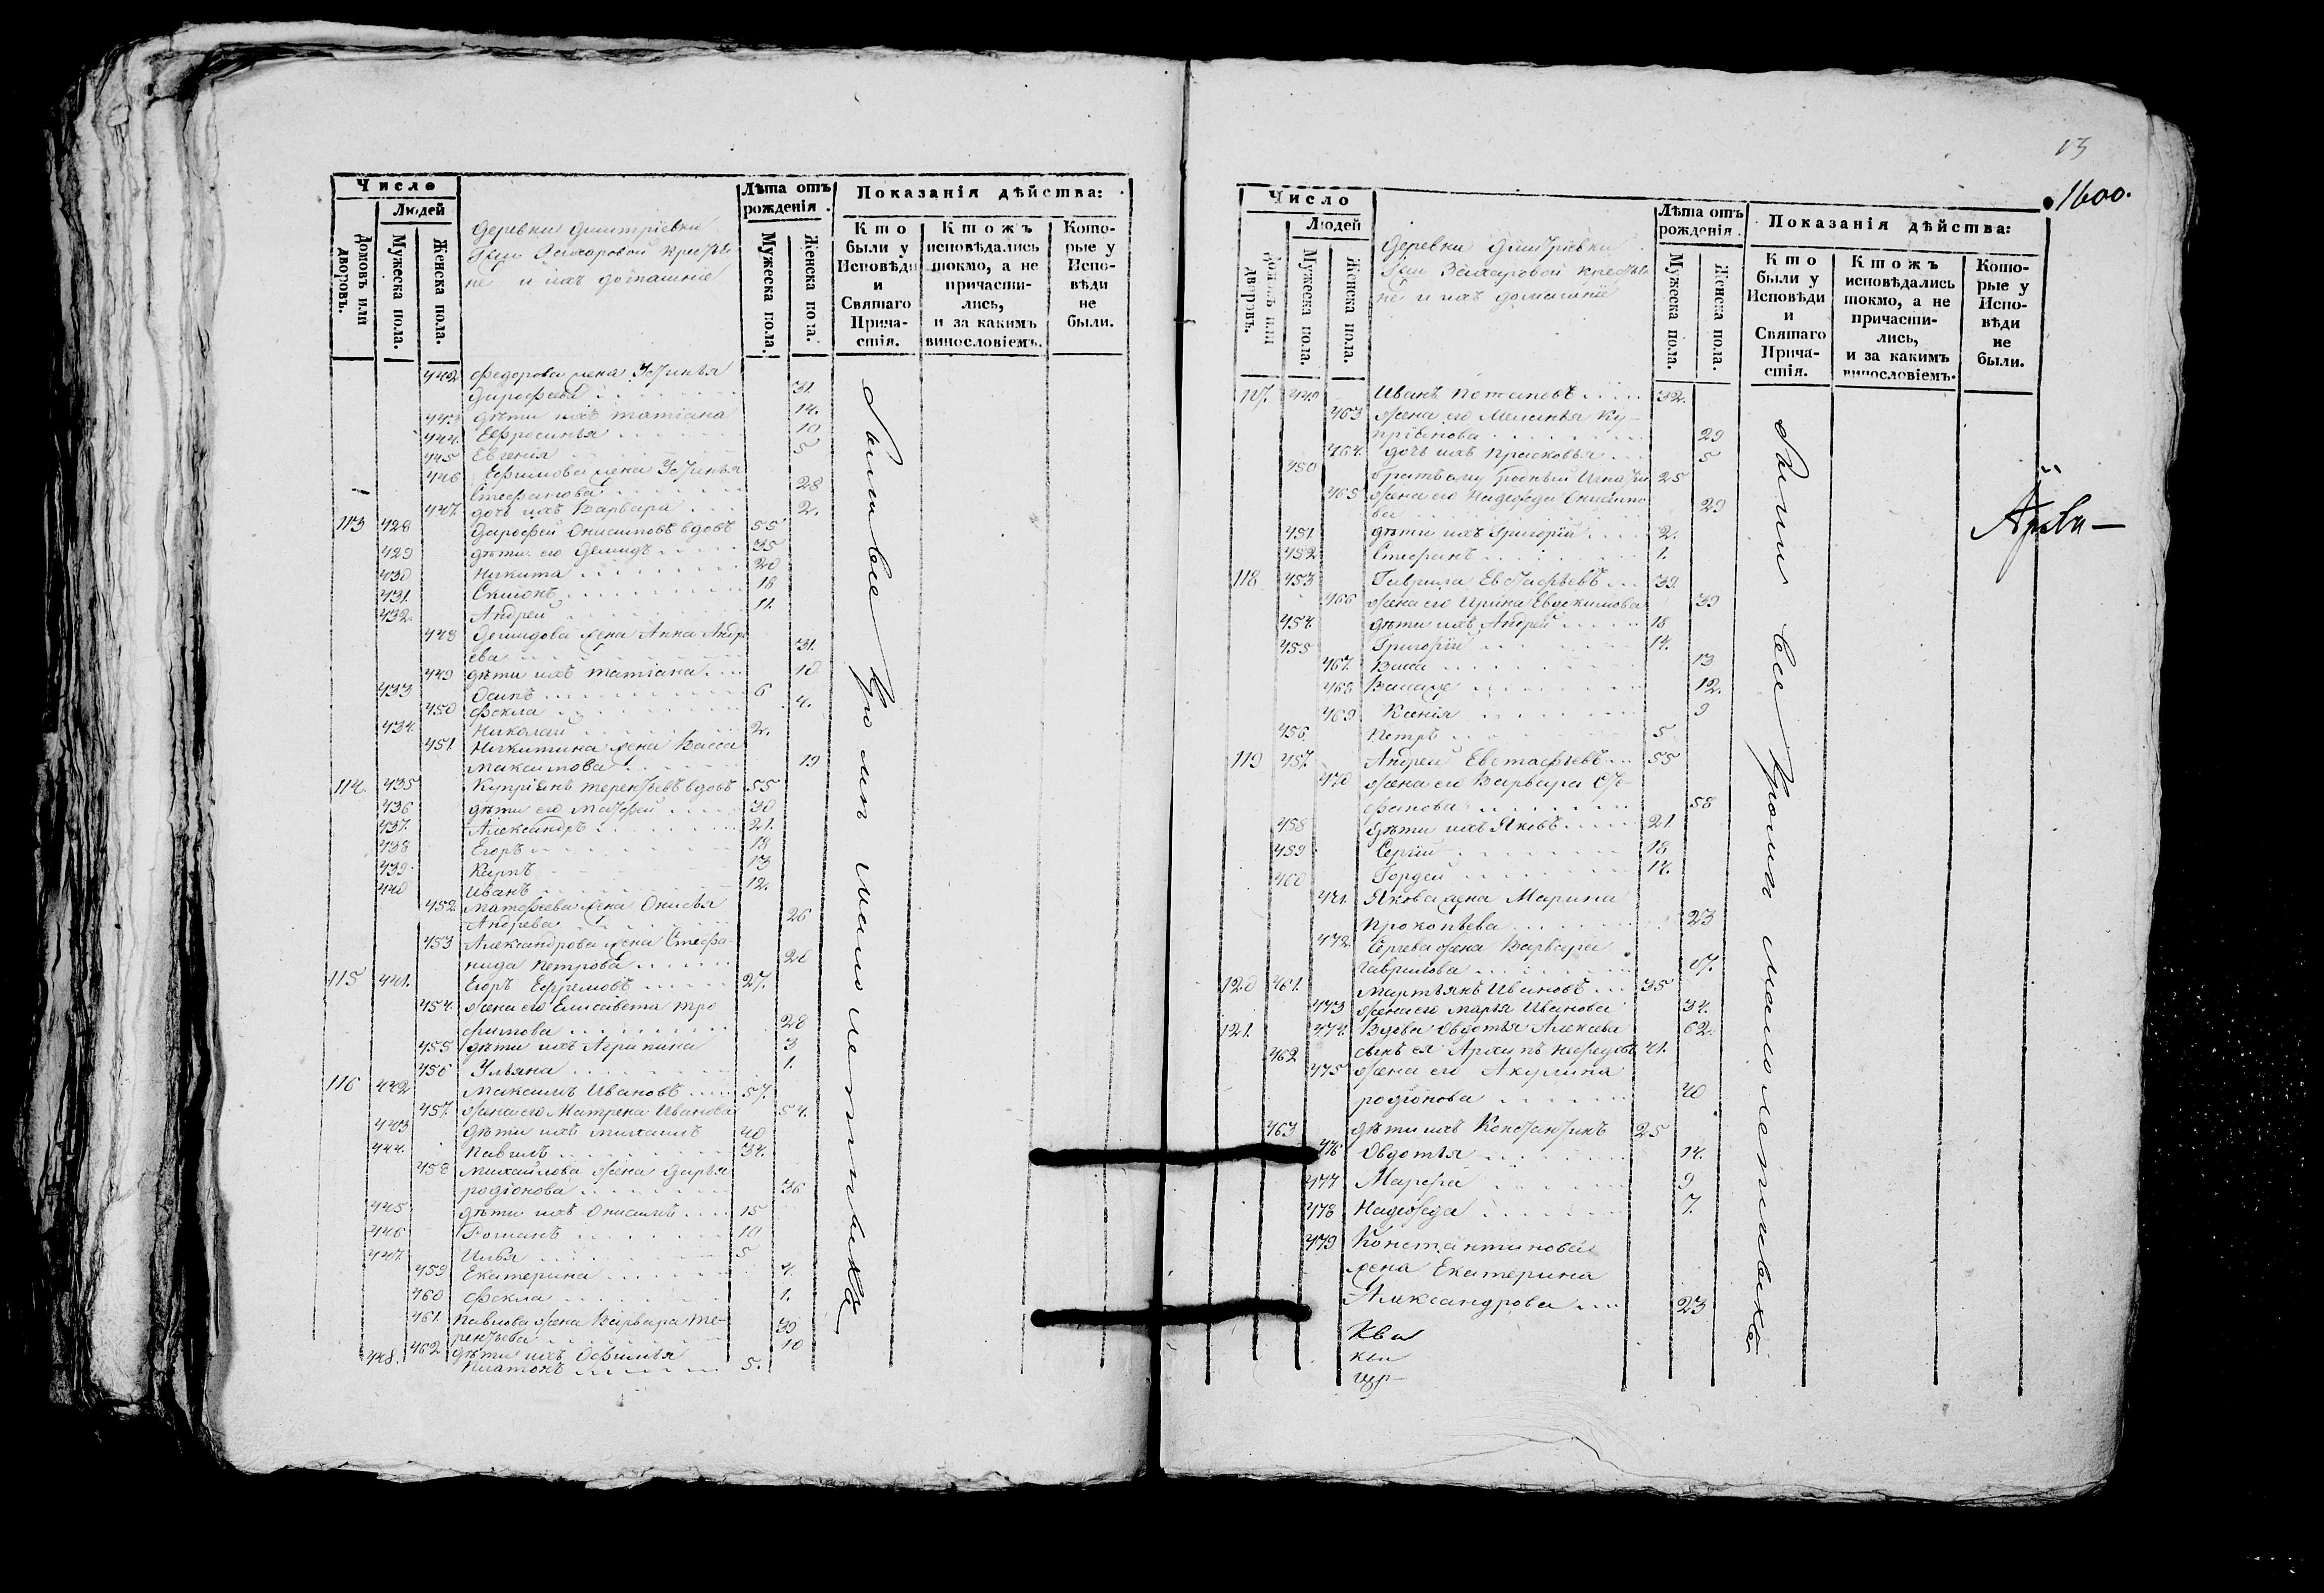 Число
Людей
Домовъ или дворовъ.
Мужеска пола.
Женска пола.
Деревни Димитріевки
Гжи Захаровой крестья
не и ихъ домашніе
Лѣта отъ рожденія.
Мужеска пола.
Женска пола.
Показанія дѣйства:
Кто были у Исповѣди и Святаго Прича-стія.
Ктожъ исповѣдались токмо, а не причасти-лись, и за какимъ винословіемъ.
Кото-рые у Испо-вѣди не были.
442 Федорова жена Устинья
Дорофеева 31.
443 дѣти ихъ Татіана 14.
444. Ефросинья 10
445 Евгенія 5
446 Ефимова жена Устинья
Стефанова 28
447. дочь ихъ Варвара 2.
113 428 Дорофей Онисимовъ вдовъ 55
429 дѣти его Демидъ 35
430 Никита 20
431. Симонъ 18
432. Андрей 11.
448 Демидова жена Анна Андре
ева 31.
449 дѣти ихъ Татіана 10
433 Осипъ 6
450 Фекла 4.
434. Николай 2.
451. Никитина жена Васса
Максимова 19
114. 435 Купріянъ Терентьевъ вдовъ 55
436 дѣти его Матфей 30
437. Александръ 21.
438 Егоръ 18
439 Карпъ 13
440 Иванъ 12.
452 Матфеева жена Онисья
Андреева 26
453 Александрова жена Стефа
нида Петрова 20
115 441. Егоръ Ефремовъ 27.
454. жена его Елисавета Тро
фимова 28
455 дѣти ихъ Агрипина 3
456 Ульяна 1.
116 442 Максимъ Ивановъ 57.
457. жена его Матрена Иванова 54.
443 дѣти ихъ Михаилъ 40
444. Павелъ 34.
458 Михайлова жена Дарья
Родіонова 36
445 дѣти ихъ Онисимъ 15
446 Романъ 10
447. Илья 5
459 Екатерина 4.
460 Фекла 1.
461. Павлова жена Варвара Те-
рентьева 39
462 дѣти ихъ Офимья 10
448. Платонъ 5.
Сіи все кроми малолетнихъ
13
1600.
Число
Людей
Домовъ или дворовъ.
Мужеска пола.
Женска пола.
Деревни Димитріевки
Гжи Захаровой крестья
не и ихъ домашніе
Лѣта отъ рожденія.
Мужеска пола.
Женска пола.
Показанія дѣйства:
Кто были у Исповѣди и Святаго Прича-стія.
Ктожъ исповѣдались токмо, а не причасти-лись, и за какимъ винословіемъ.
Кото-рые у Испо-вѣди не были.
117. 449 Иванъ Потаповъ 32.
463 жена его Меланья Ку-
пріянова 29
464. дочь ихъ Прасковья 5
450 братъ ему родный Игнатій 25
465 жена его Надежда Онисимо
ва 29
451. дѣти ихъ Григорій 2.
452 Стефанъ 1.
118 453 Гаврила Евстафьевъ 39.
466 жена его Ирина Евдокимова 39
454. дѣти ихъ Андрей 18
455 Григорій 14.
467. Васса 13
468 12.
469 Ксенія 9
456 Петръ 5
119 457. Андрей Евстафьевъ 55
470 жена его Варвара Сте-
фанова 58
458 дѣти ихъ Яковъ 21.
459 Сергій 18
460 Гордей 14.
471. Якова жена Марина
Прокопьева 23
472. Сергева жена Варвара
Гаврилова
120 461. Мартьянъ Ивановъ 35
473 жена его Марья Иванова 34.
121. 474. Вдова Овдотья Алексева 62.
462 сынъ ея Архипъ 41.
475 жена его Акулина
Родіонова 40
463 дѣти ихъ Константинъ 25
476 Овдотья 14.
477 Марфа 9
478 Надежда 7.
479 Константинова
жена Екатерина
Александрова 23
Сіи все кроми малолетнихъ